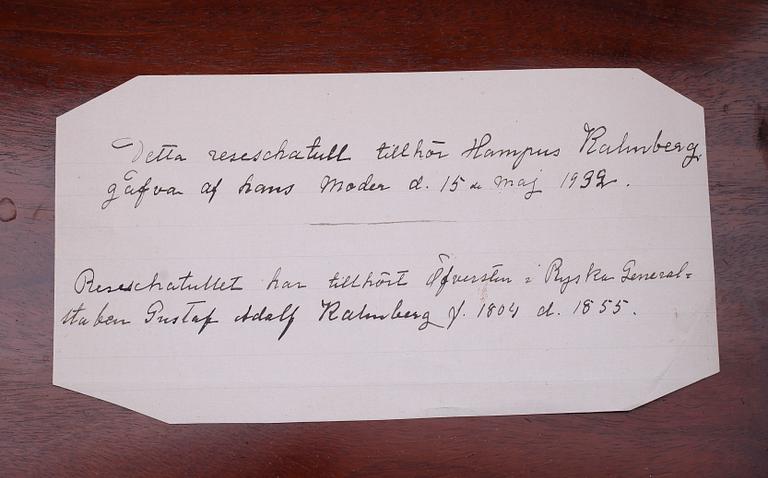 Detta reseschatull tillhör Hampus Kalmberg,
gåfva af hans Moder d. 15 de Maj 1932.
Reseschatullet har tillhört Öfversten i Ryska General=
staben Gustaf Adolf Kalmberg f. 1804 d. 1855.